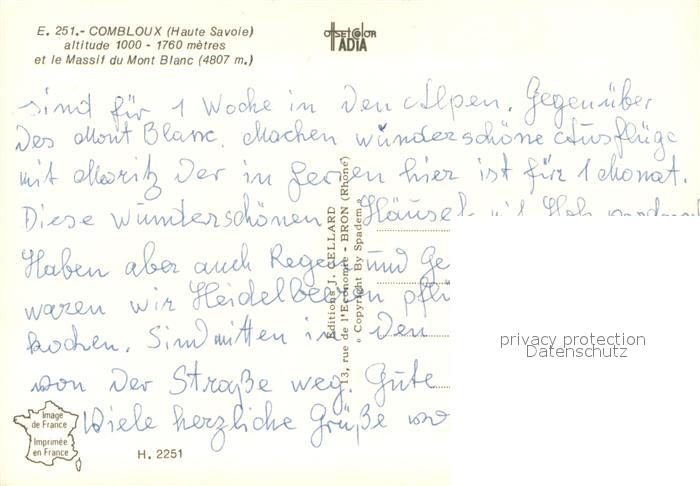 E. 251.- COMBLOUX (Haute Savoie)
altitude 1000 - 1760 mètres
et le Massif du Mont Blanc (4807 m.)
OFFSET COLOR
IADIA
sind für 1 Woche in den Alpen. Gegenüber
des Mont Blanc. Machen wunderschöne Ausflüge
mit Moritz der in Ferien hier ist für 1 Monat.
Diese wunderschönen Häuser mit Holz
Haben aber auch Regen und Ge
waren wir Heidelbeeren pflü
kochen. Sind mitten in den
von der Straße weg. Gute
Viele herzliche Grüße vo
Editions J. CELLARD
13, rue de l'Economie - BRON (Rhône)
« Copyright By Spadem »
privacy protection
Datenschutz
Image
de France
Imprimée
en France
H. 2251